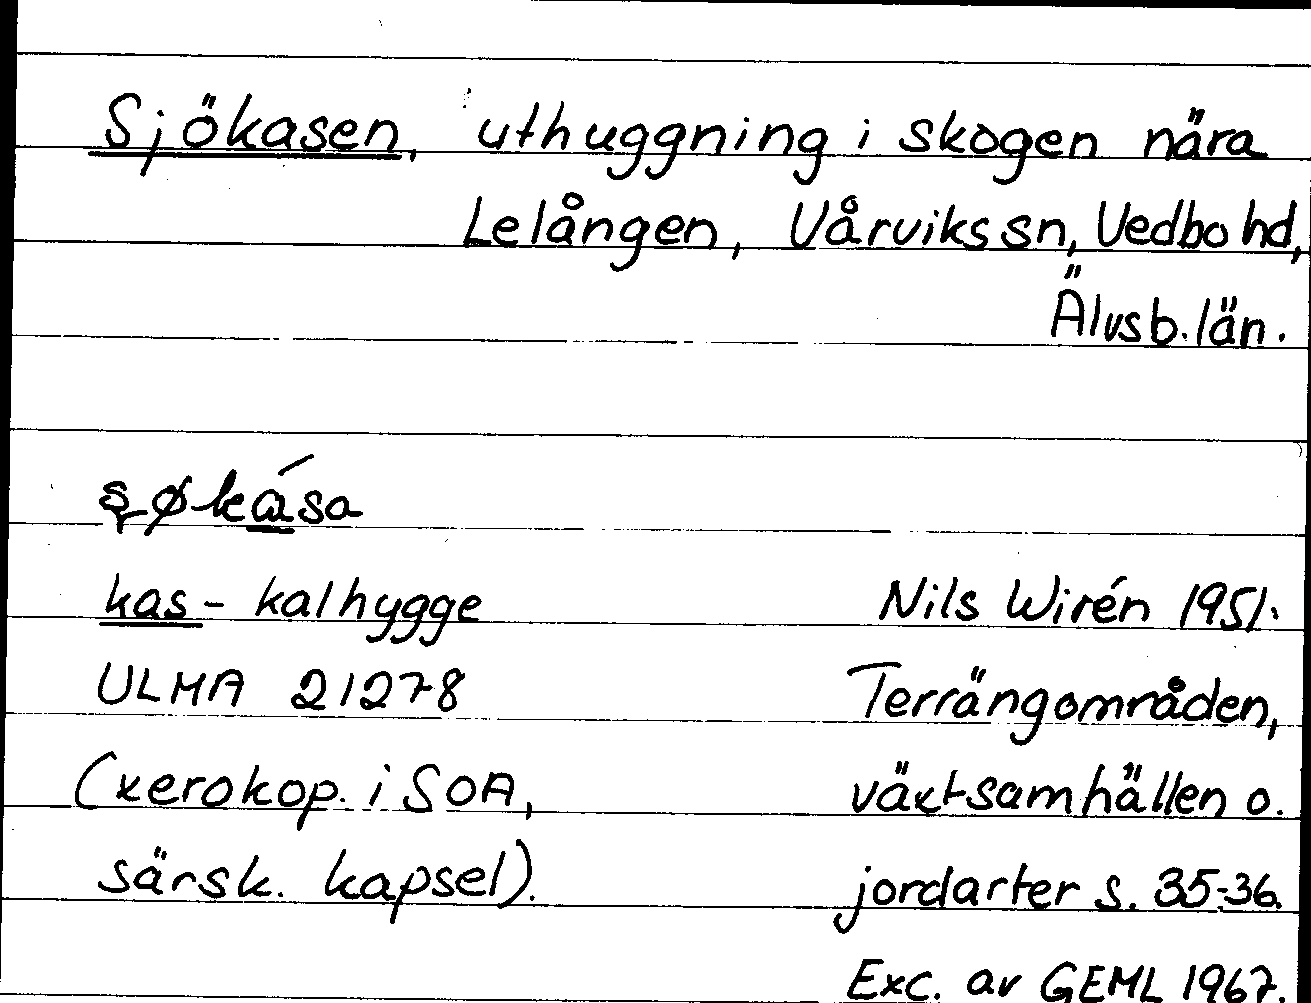 Sjökasen, uthuggning i skogen nära
Lelången, Vårviks sn, Vedbo hd,
Älvsb. län.
kas - kalhygge
ULMA 21278
(xerokop. i SOA,
särsk. kapsel).
Nils Wirén 1951.
Terrängområden,
växtsamhällen o.
jordarter s. 35-36.
Exc. av GEML 1967.